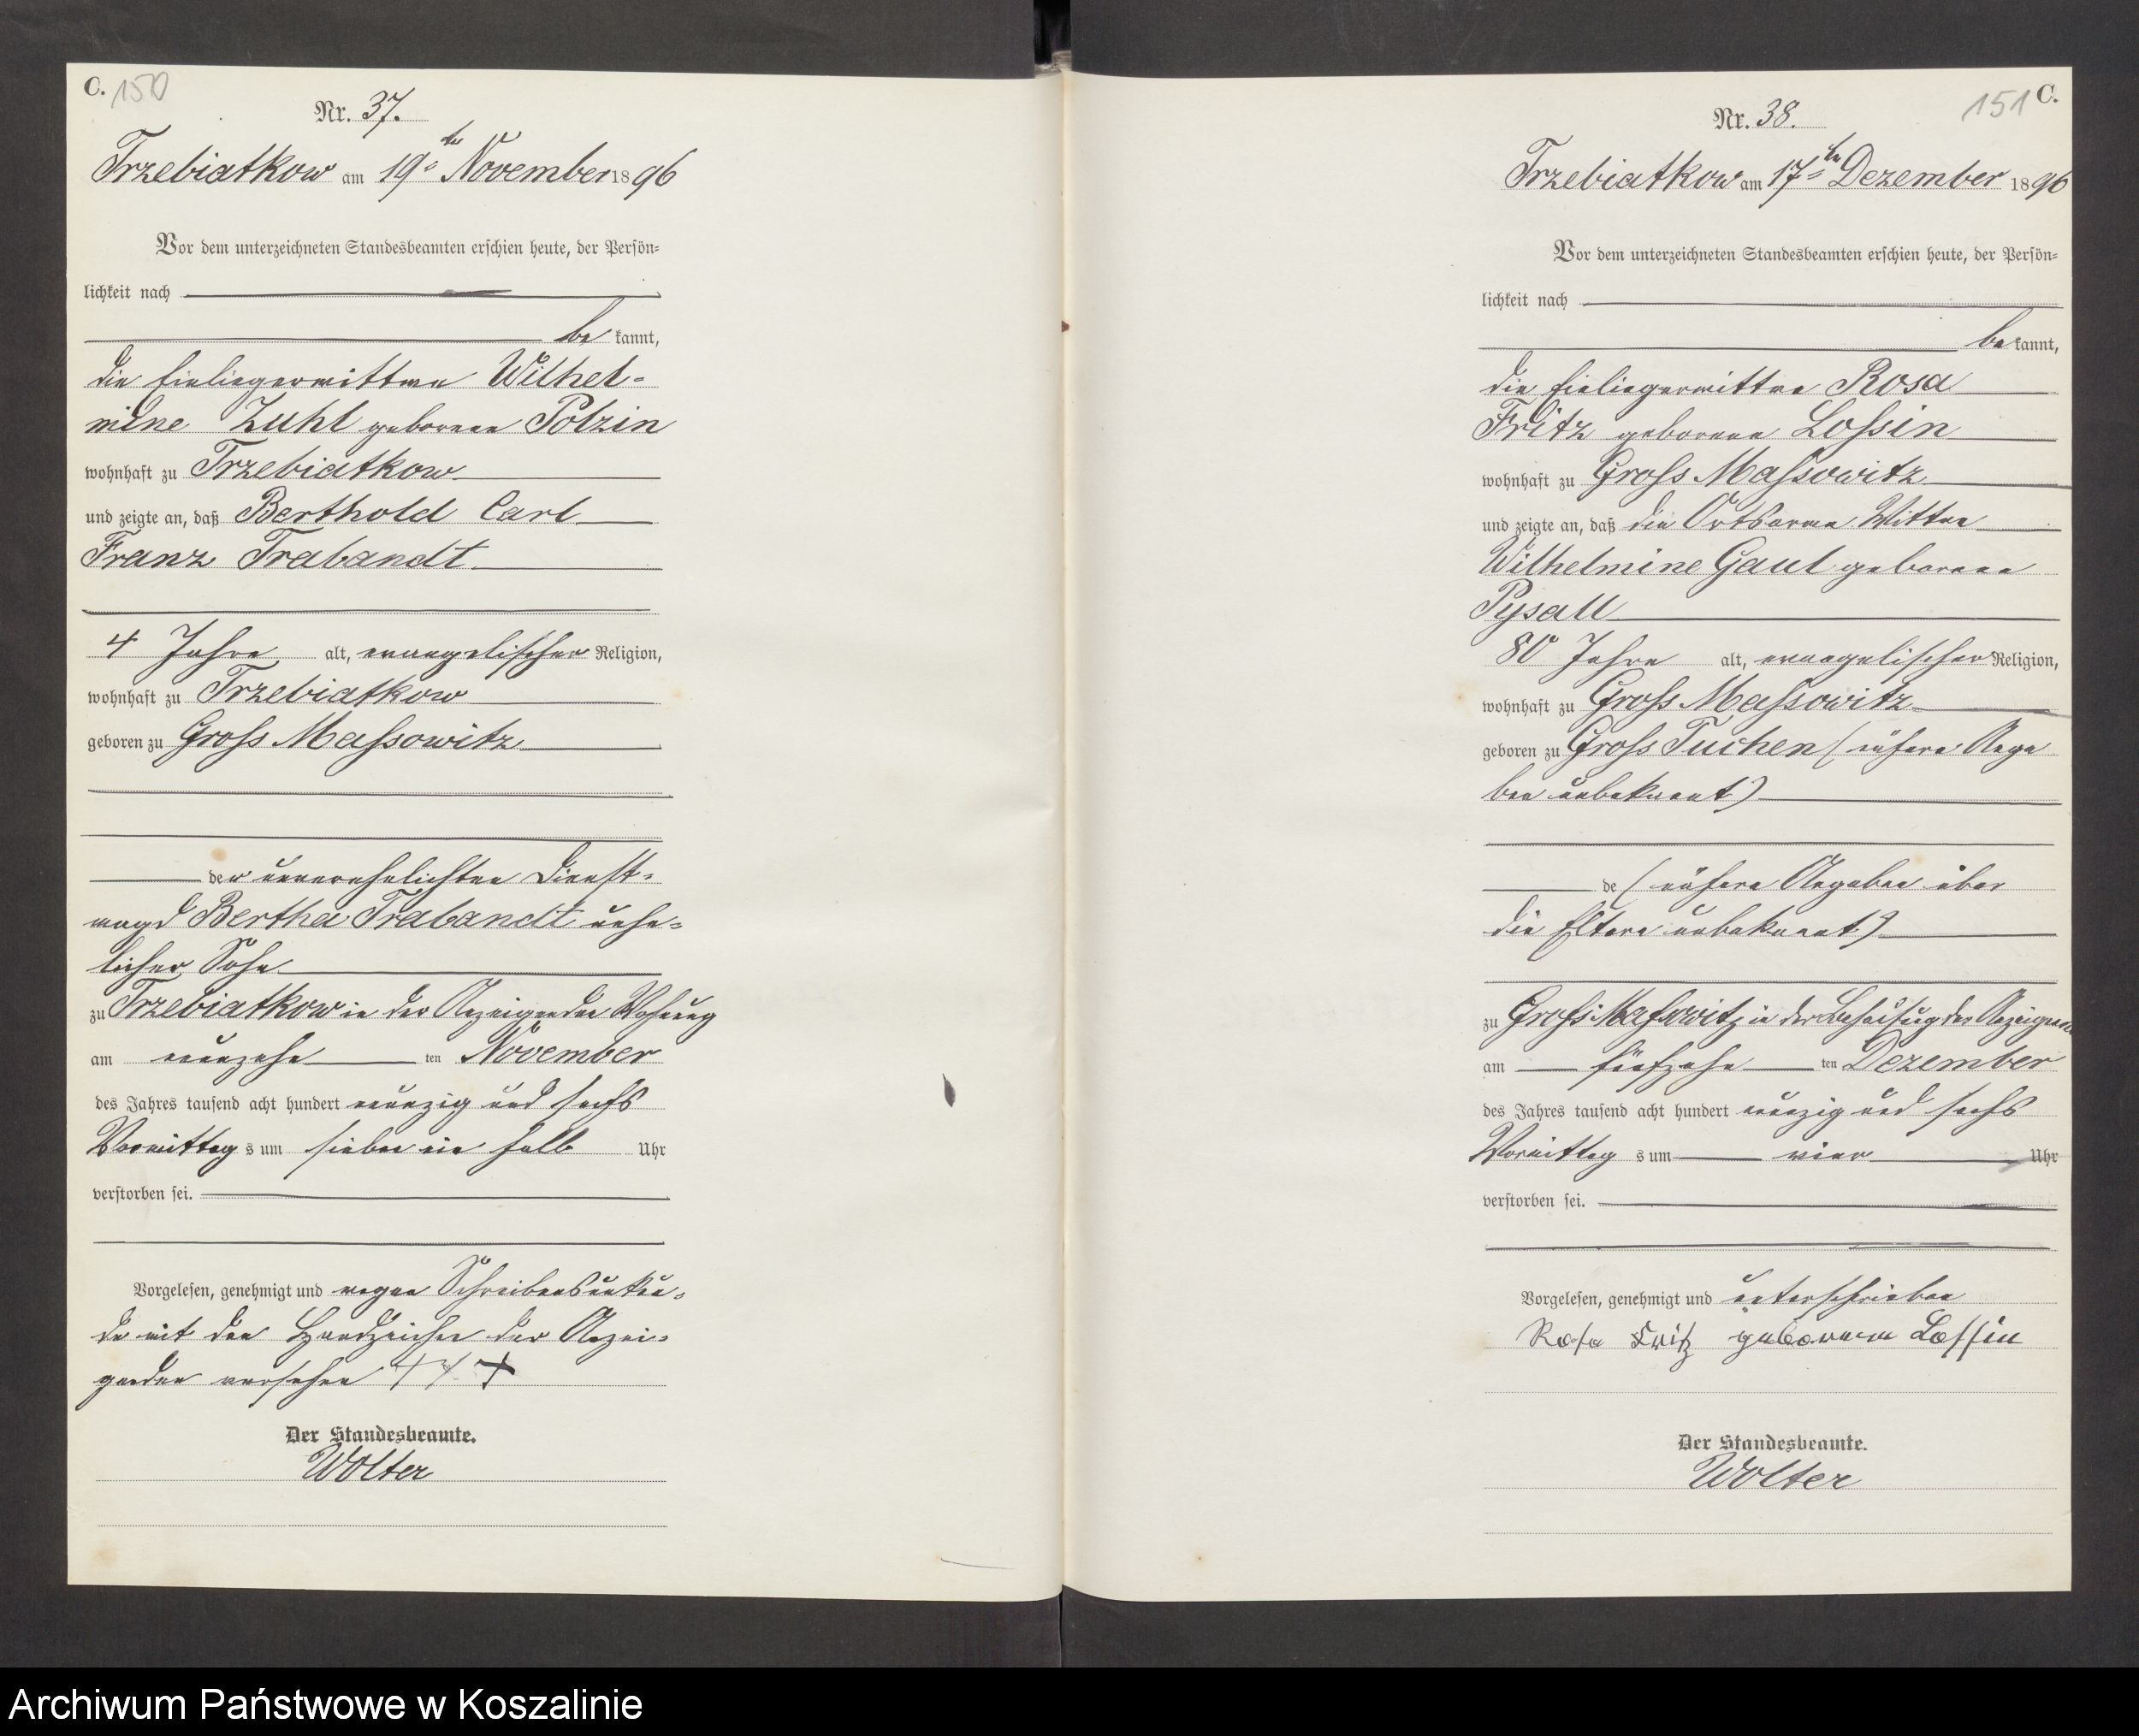 C. 150
Nr. 37.
Trzebiatkow am 19ten November 1896
Vor dem unterzeichneten Standesbeamten erschien heute, der Persön=
lichkeit nach
be kannt,
die Einliegerwittwe Wilhel=
mine Zuhl geborene Polzin
wohnhaft zu Trzebiatkow
und zeigte an, daß Berthold Carl
Franz Trabandt
4 Jahre alt, evangelischer Religion,
wohnhaft zu Trzebiatkow
geboren zu Gross Massowitz
der unverehelichten Dienst=
magd Bertha Trabandt unehe=
licher Sohn
zu Trzebiatkow in der Anzeigenden Wohnung
am neunzehn ten November
des Jahres tausend acht hundert neunzig und sechs
Vormittag s um sieben ein halb Uhr
verstorben sei.
Vorgelesen, genehmigt und wegen Schreibensunkun=
de mit den Handzeichen der Anzei=
genden versehen + + +
Der Standesbeamte.
Wolter
151 C.
Nr. 38.
Trzebiatkow am 17ten Dezember 1896
Vor dem unterzeichneten Standesbeamten erschien heute, der Persön=
lichkeit nach
be kannt,
die Einliegerwittwe Rosa
Fritz geborene Lossin
wohnhaft zu Gross Massowitz
und zeigte an, daß die Ortsarme Wittwe
Wilhelmine Gaul geborene
Pysall
80 Jahre alt, evangelischer Religion,
wohnhaft zu Gross Massowitz
geboren zu Gross Tuchen (nähere Anga
ben unbekannt)
de (nähere Angaben über
die Eltern unbekannt)
zu Gross Massowitz in der Behausung der Anzeigenden
am fünfzehn ten Dezember
des Jahres tausend acht hundert neunzig und sechs
Vormittag s um vier Uhr
verstorben sei.
Vorgelesen, genehmigt und unterschrieben
Rosa Fritz geborene Lossin
Der Standesbeamte.
Wolter
Archiwum Państwowe w Koszalinie